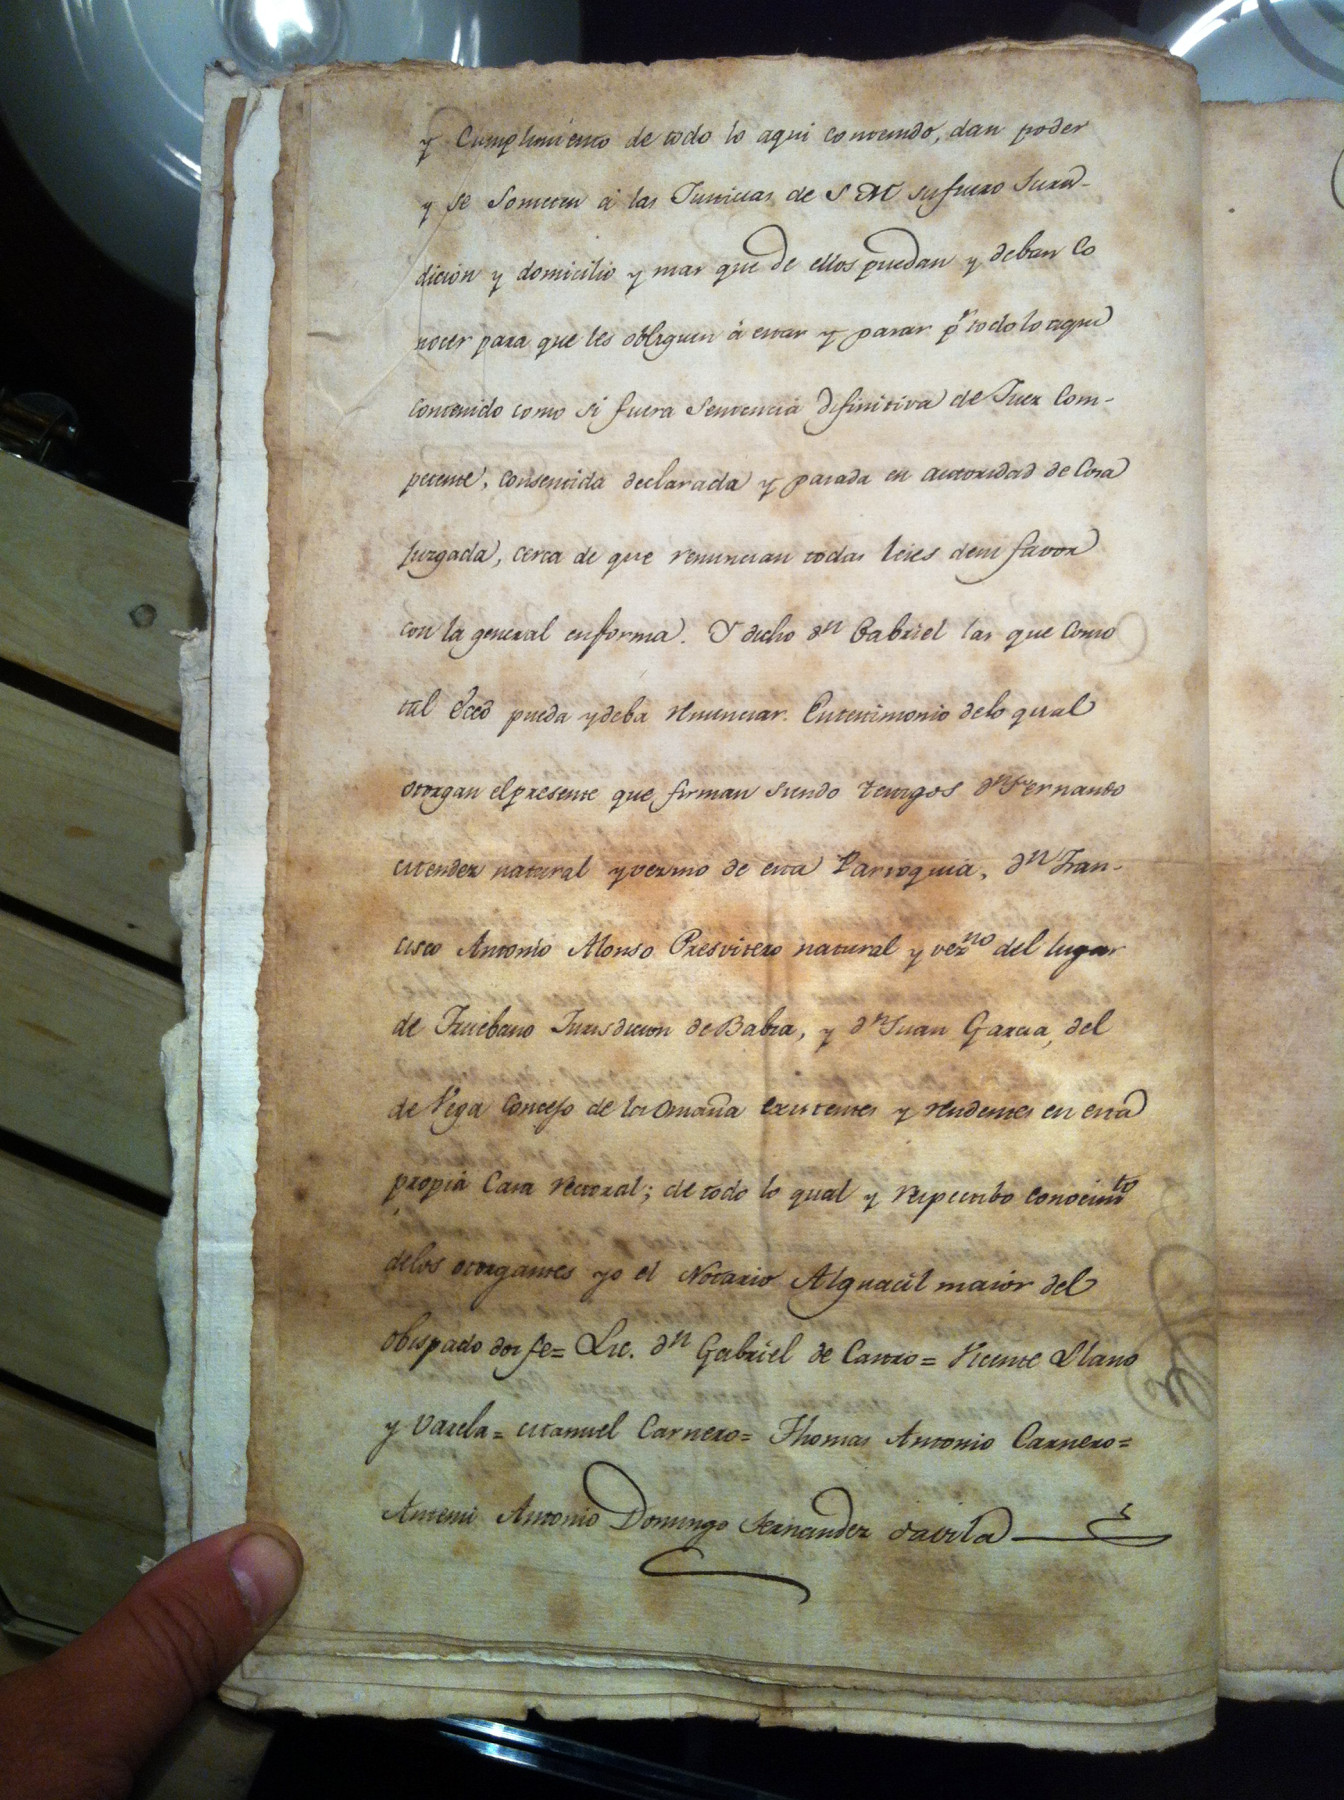 y Cumplimiento de todo lo aqui contenido, dan poder
y se Someten à las Justicias de S M su fuero Juris-
dicion y domicilio y mas que de ellos puedan y deban Co
nocer para que les obliguen à estar y pasar pr todo lo aqui
contenido como si fuera Sentencia difinitiva de Juez Com-
petente, consentida declarada y pasada en autoridad de Cosa
Juzgada, cerca de que renuncian todas leies de su favor
con la general en forma. Y dicho dn Gabriel las que como
tal pueda y deba renunciar. En testimonio de lo qual
otorgan el presente que firman siendo testigos dn Fernando
Mendez natural y vezino de esta Parroquia, dn Fran-
cisco Antonio Alonso Presvitero natural y vezno del lugar
de Jurisdicion de Babia, y dn Juan Garcia, del
de Vega Concejo de la Omaña existentes y residentes en esta
propia Casa rectoral; de todo lo qual y respectibo conocimto
de los otorgantes yo el Notario Alguacil maior del
obispado doi fe= Lic. dn Gabriel de Castro= Vicente Llano
y Varela= Manuel Carnero= Thomas Antonio Carnero=
Antemi Antonio Domingo Fernandez davila